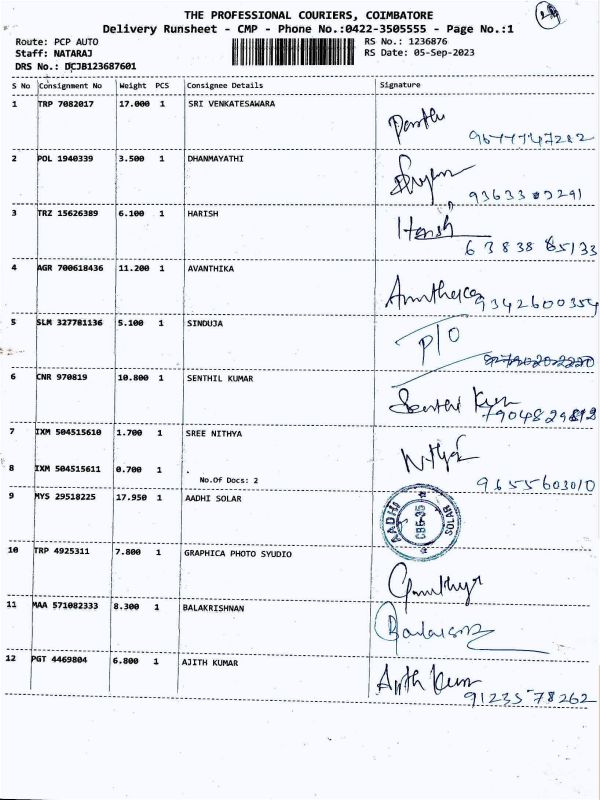 THE PROFESSIONAL COURIERS, COIMBATORE
Delivery Runsheet - CMP - Phone No.:0422-3505555 - Page No.:1
Route: PCP AUTO
RS No.: 1236876
Staff: NATARAJ
RS Date: 05-Sep-2023
DRS No.: DCJB123687601
S No Consignment No Weight PCS Consignee Details Signature
1 TRP 7082017 17.000 1 SRI VENKATESAWARA
2 POL 1940339 3.500 1 DHANMAYATHI
3 TRZ 15626389 6.100 1 HARISH Harish
4 AGR 700618436 11.200 1 AVANTHIKA
9342600354
5 SLM 327781136 5.100 1 SINDUJA P/O
6 CNR 970819 10.800 1 SENTHIL KUMAR Senthil Kum
7 IXM 504515610 1.700 1 SREE NITHYA
8 IXM 504515611 0.700 1 .
No.Of Docs: 2
9655603010
9 MYS 29518225 17.950 1 AADHI SOLAR
AADHI SOLAR
CBE-35
10 TRP 4925311 7.800 1 GRAPHICA PHOTO SYUDIO
11 MAA 571082333 8.300 1 BALAKRISHNAN
12 PGT 4469804 6.800 1 AJITH KUMAR Ajith Kum
9123578262